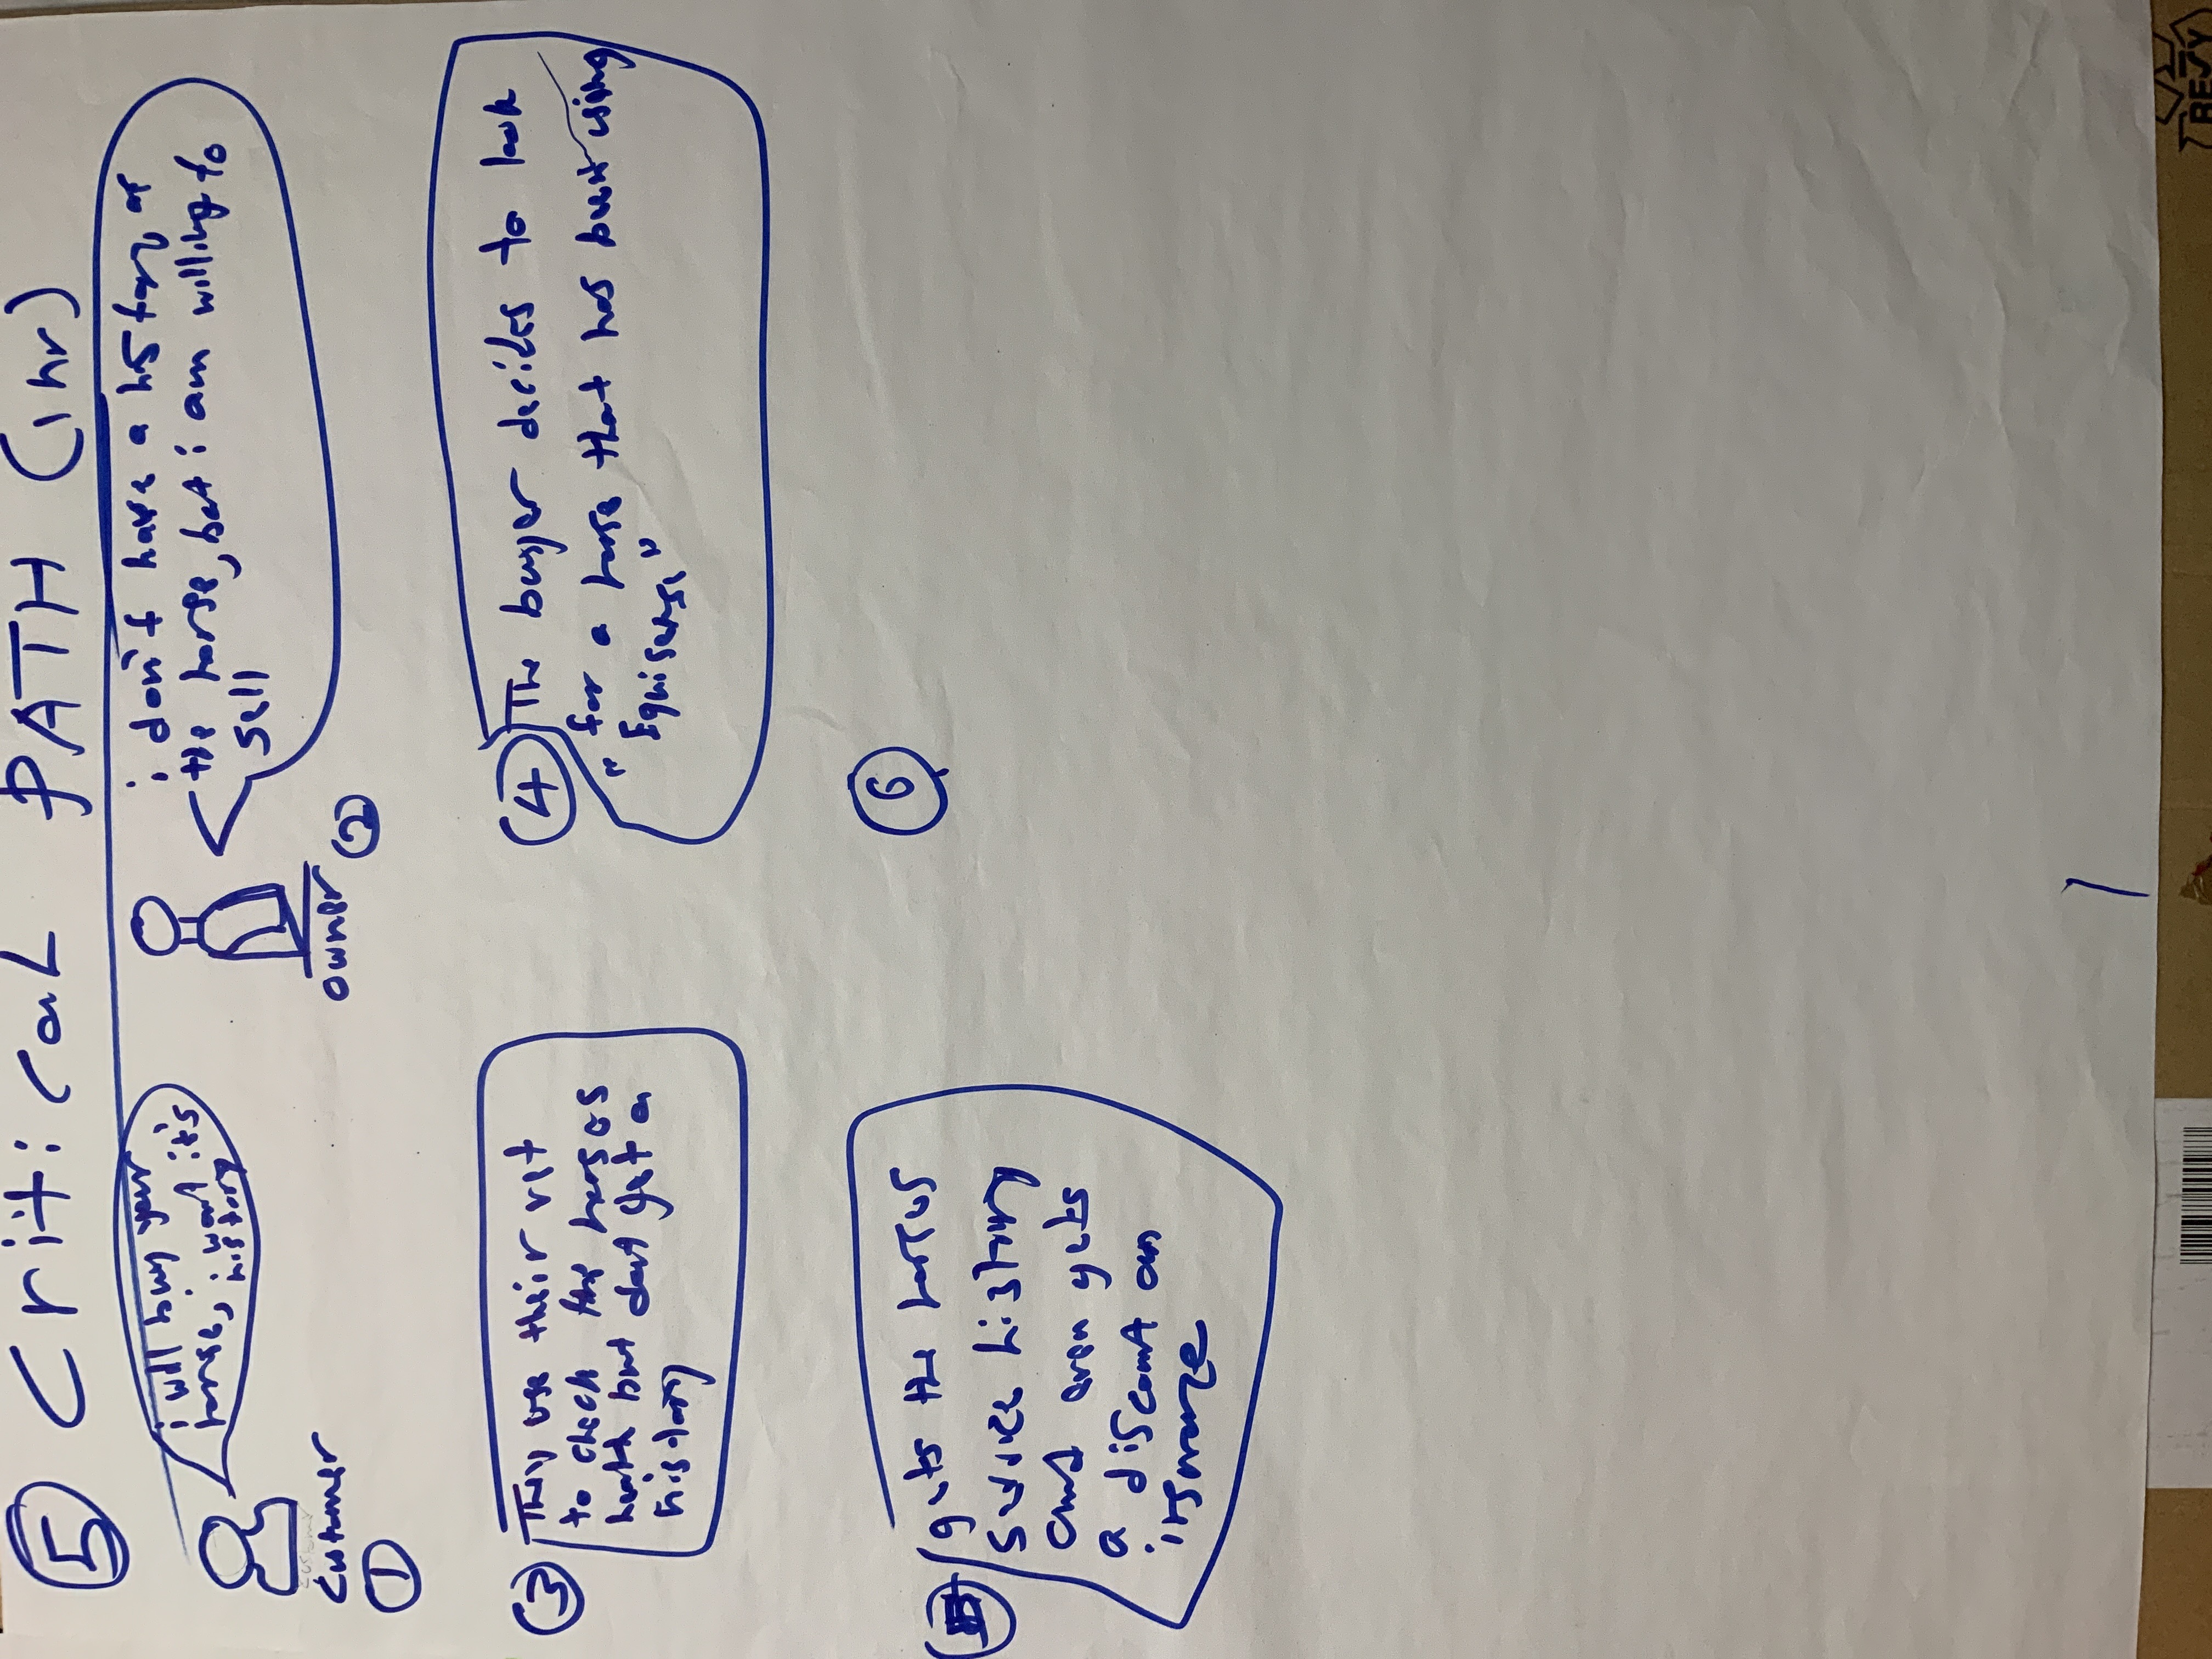 5 Critical PATH (1 hr)
i will buy your
horse, i want it's
history
Customer
1
i don't have a history of
the horse, but i am willing to
sell
owner
2
3
They use their vet
to check the horses
health but dont get a
history
4
The buyer decides to look
for a horse that has been using
"Equisense"
5
gets the horses
service history
and even gets
a discount on
insurance
6
RESY